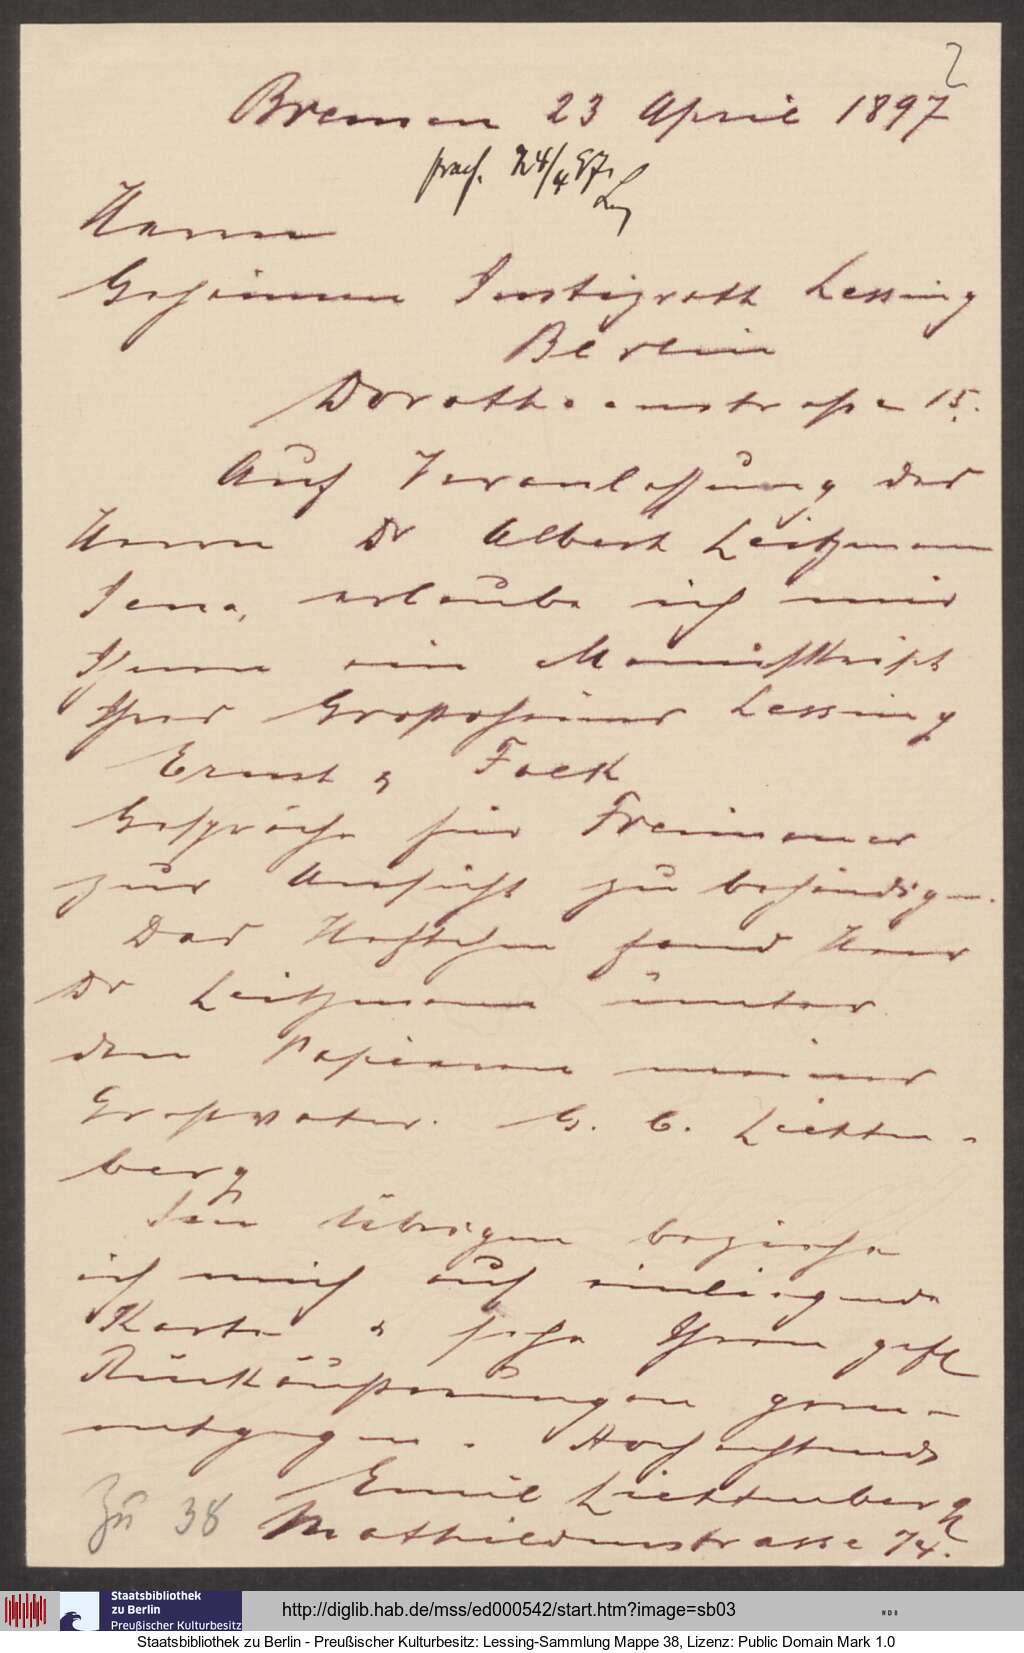 2
Bremen 23 April 1897
praes. 24/4 97.
Herrn
Geheimen Justizrath Lessing
Berlin
Dorotheenstraße 15.
Auf Veranlassung des
Herrn Dr Albert Leitzmann
Jena, erlaube ich mir
Ihnen ein Manuskript
Ihres Großoheims Lessing
Ernst & Falk
Gespräche für Freimaurer
zur Ansicht zu behändigen.
Das Heftchen fand Herr
Dr Leitzmann unter
den Papieren meines
Großvaters. G. C. Lichten-
berg
Im Übrigen beziehe
ich mich auf einliegende
Karte & sehe Ihren gefl
Rückäußerungen gern
entgegen. Hochachtend
Emil Lichtenberg
Mathildenstrasse 74.
Zu 38
Staatsbibliothek
zu Berlin
Preußischer Kulturbesitz
http://diglib.hab.de/mss/ed000542/start.htm?image=sb03
WDB
Staatsbibliothek zu Berlin - Preußischer Kulturbesitz: Lessing-Sammlung Mappe 38, Lizenz: Public Domain Mark 1.0